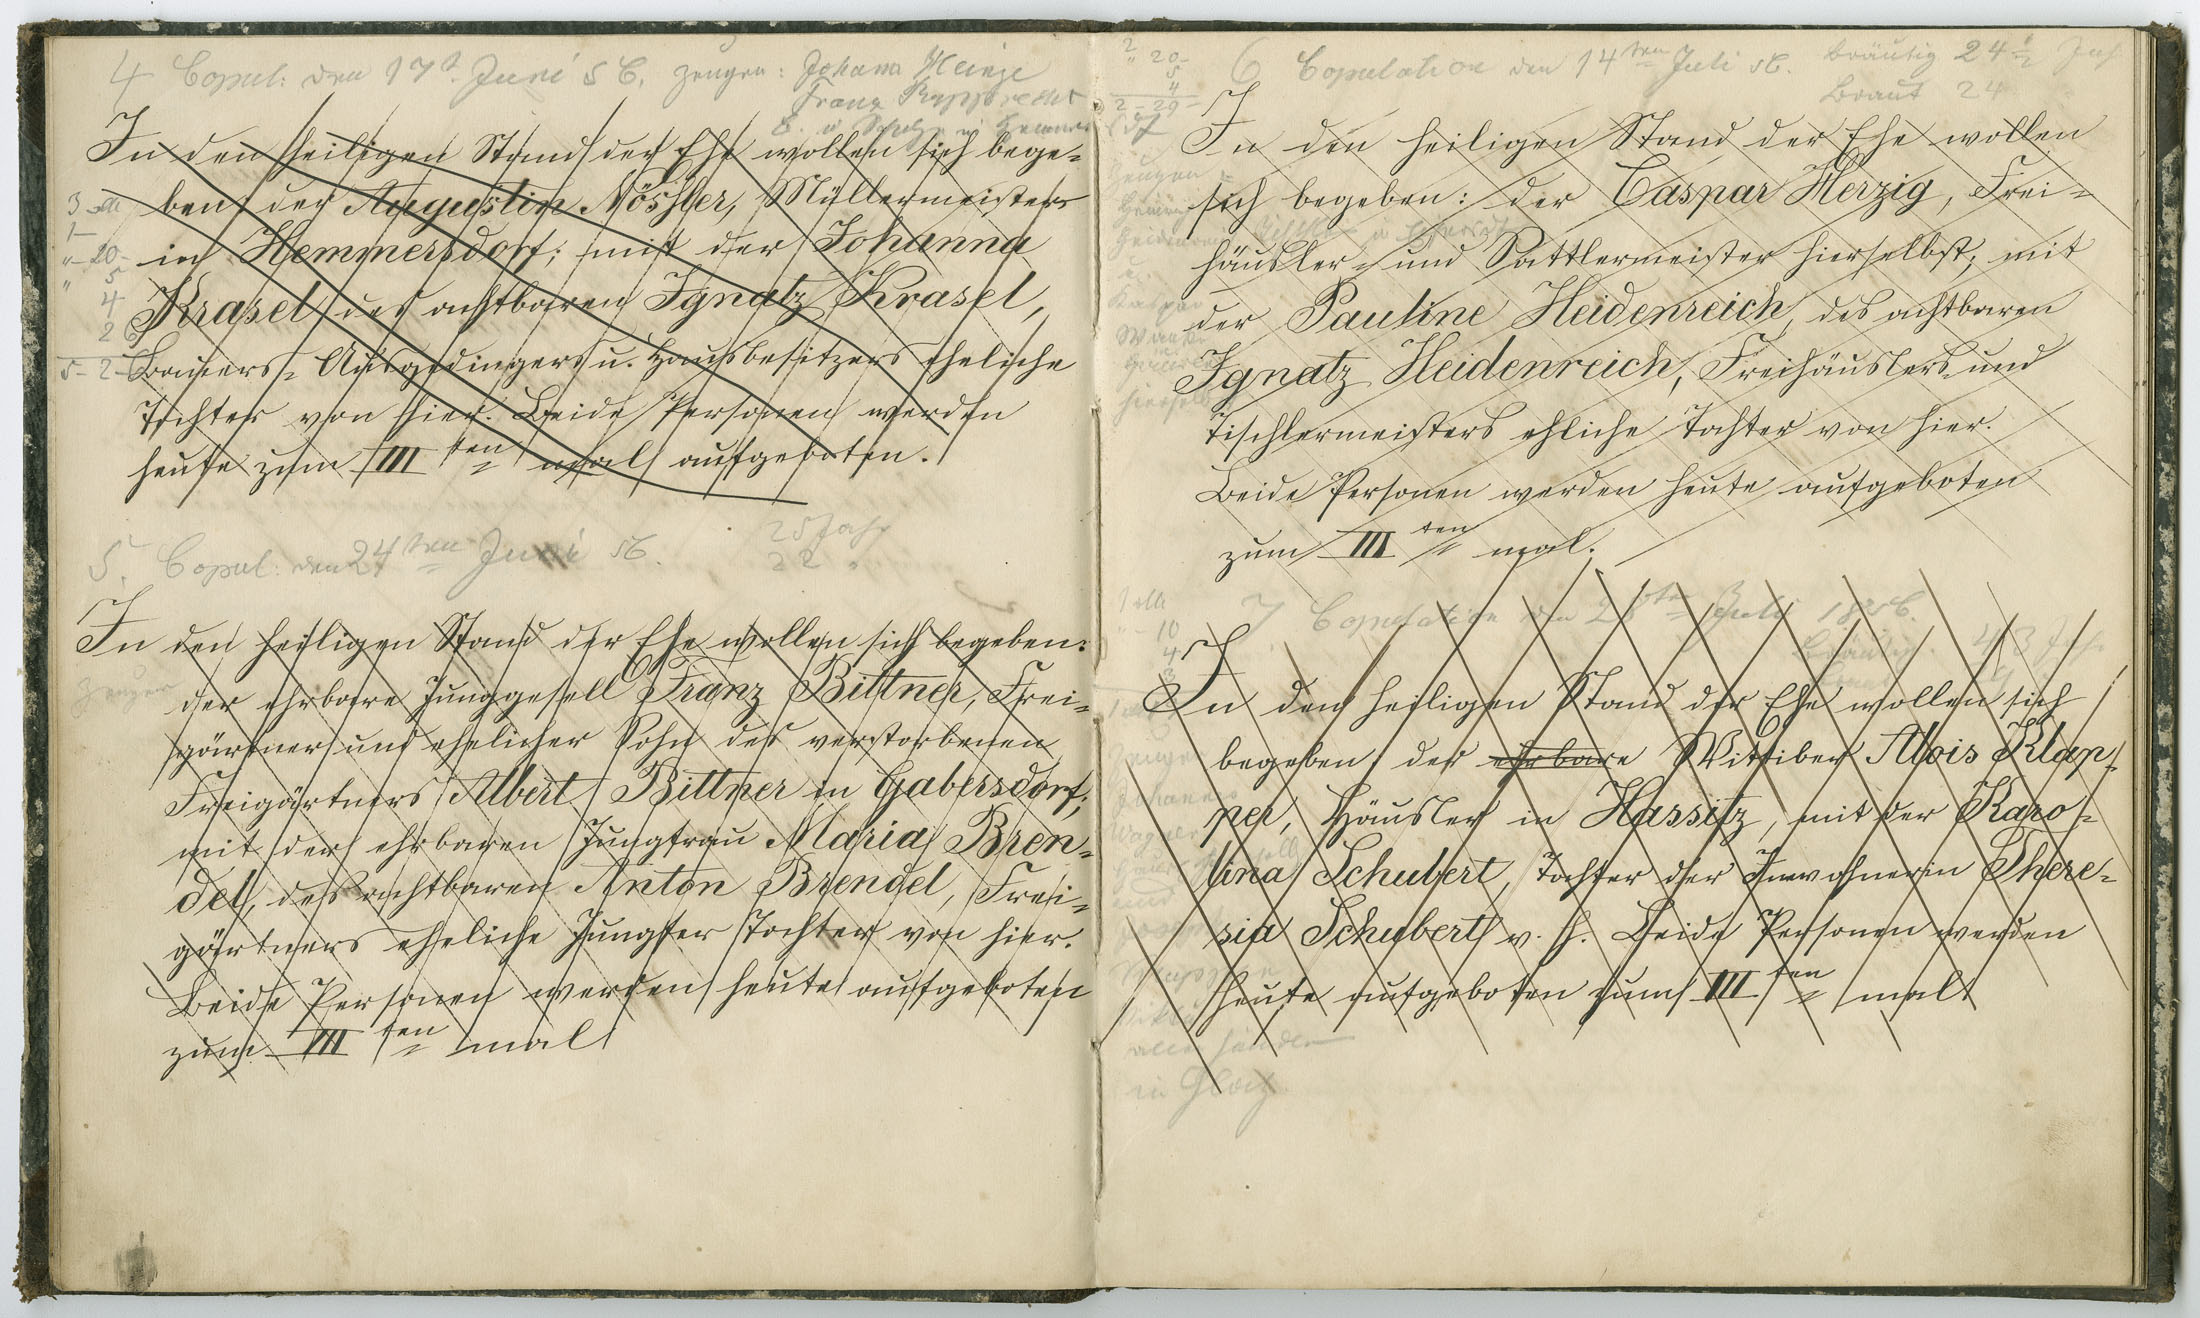 4 Copul: den 17t Juni 56. Zeugen: Johann Heinze
Franz Rupprecht
In den heiligen Stand der Ehe wollen sich bege-
ben der Augustin Nösler, Müllermeister
in Hemmersdorf; mit der Johanna
Krasel des achtbaren Ignatz Krasel,
Bauers-Ausgedingers u. Hausbesitzers eheliche
Tochter von hier. Beide Personen werden
heute zum III ten mal aufgeboten.
3
1-
"-20-
" 5
4
2 6
5-2-
5. Copul: den 24 ten Juni 56. 25 Jahr
22 "
In den heiligen Stand der Ehe wollen sich begeben:
Zeugen
der ehrbare Junggesell Franz Bittner, Frei-
gärtner und ehelicher Sohn des verstorbenen
Freigärtners Albert Bittner in Gabersdorf;
mit der ehrbaren Jungfrau Maria Bren-
del, des achtbaren Anton Brendel, Frei-
gärtners eheliche Jungfer Tochter von hier.
Beide Personen werden heute aufgeboten
zum III ten mal
2
" 20-
5
4
2-29-
6 Copulation den 14 ten Juli 56. Bräutig 24 ½ Jah
Braut 24
In den heiligen Stand der Ehe wollen
sich begeben: der Caspar Herzig, Frei-
häusler- und Sattlermeister hierselbst, mit
der Pauline Heidenreich, des achtbaren
Ignatz Heidenreich, Freihäuslers und
Tischlermeisters ehliche Tochter von hier.
Beide Personen werden heute aufgeboten
zum III ten mal.
Zeugen
hierselbst
7 Copulation den 28 ten Juli 1856.
Bräutig. 43 Jah.
10
4
In den heiligen Stand der Ehe wollen sich
begeben der ehrbare Wittiber Alois Klap-
per, Häusler in Hassitz, mit der Karo-
lina Schubert, Tochter der Inwohnerin There-
sia Schubert v. h. Beide Personen werden
heute aufgeboten zum III ten mal
Johannes
Wagner
und
in Glatz